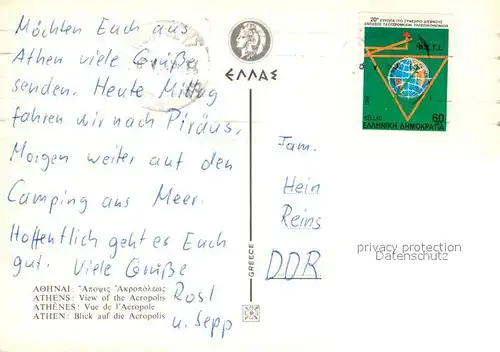 Möchten Euch aus
Athen viele Grüße
senden. Heute Mittag
fahren wir nach Piräus,
Morgen weiter auf den
Camping ans Meer.
Hoffentlich geht es Euch
gut. Viele Grüße
Rosl
u. Sepp
ΑΘΗΝΑΙ: Ἄποψις Ἀκροπόλεως
ATHENS: View of the Acropolis
ATHÈNES: Vue de l'Acropole
ATHEN: Blick auf die Acropolis
ΕΛΛΑΣ
GREECE
20º ΕΥΡΩΠΑΪΚΟ ΣΥΝΕΔΡΙΟ ΔΙΕΘΝΟΥΣ
ΕΝΩΣΕΩΣ ΤΑΧΥΔΡΟΜΙΚΩΝ ΤΗΛΕΠΙΚΟΙΝΩΝΙΩΝ
HELLAS 60
ΕΛΛΗΝΙΚΗ ΔΗΜΟΚΡΑΤΙΑ
Fam.
Hein
Reins
DDR
privacy protection
oldthing.de